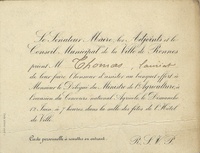 Le Sénateur Maire, les Adjoints et le
Conseil Municipal de la Ville de Rennes
prient M. Thomas, lauréat
de leur faire l'honneur d'assister au banquet offert à
Monsieur le Délégué du Ministre de l'Agriculture, à
l'occasion du Concours national Agricole, le Dimanche
Juin à 7 heures dans la salle des fêtes de l'Hôtel
de Ville.
Carte personnelle à remettre en entrant.
R.S.V.P.